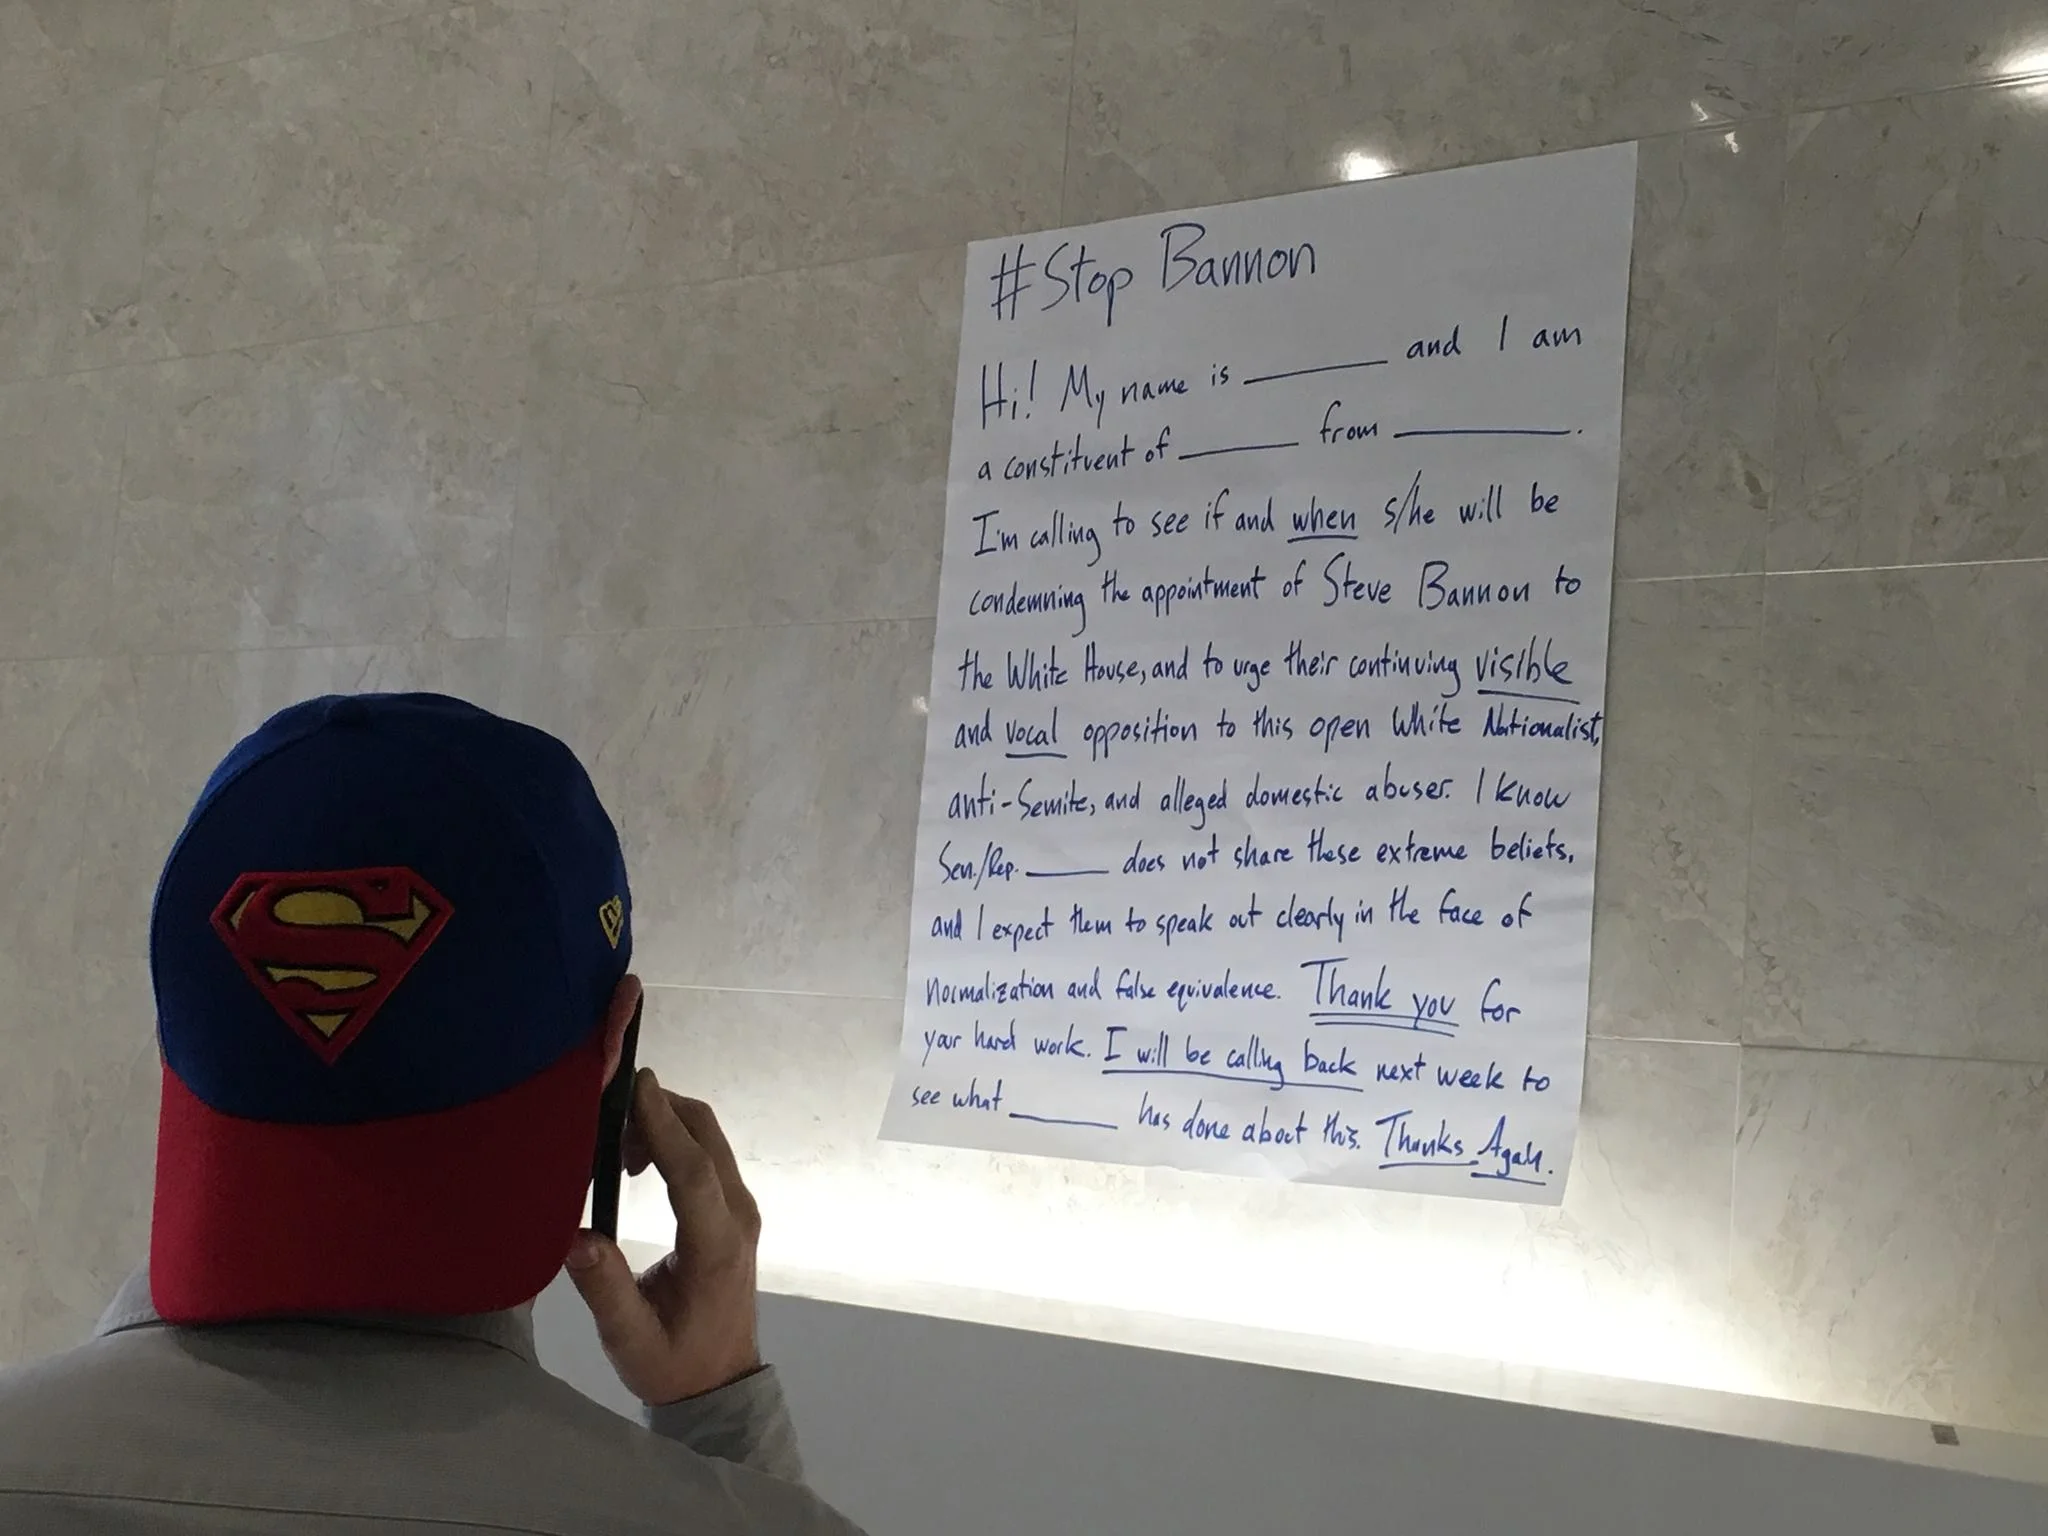 #Stop Bannon
Hi! My name is ______ and I am
a constituent of ______ from ______.
I'm calling to see if and when s/he will be
condemning the appointment of Steve Bannon to
the White House, and to urge their continuing visible
and vocal opposition to this open White Nationalist,
anti-Semite, and alleged domestic abuser. I know
Sen./Rep. ______ does not share these extreme beliefs,
and I expect them to speak out clearly in the face of
normalization and false equivalence. Thank you for
your hard work. I will be calling back next week to
see what ______ has done about this. Thanks Again.
S